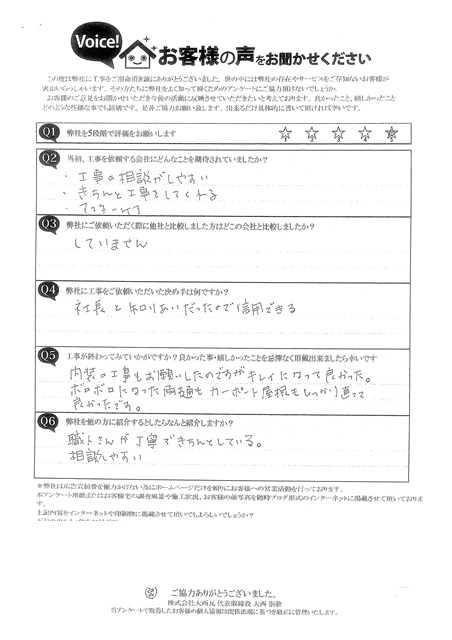 Voice!
お客様の声をお聞かせください
この度は弊社に工事をご用命頂き誠にありがとうございました。世の中には弊社の存在やサービスをご存知ないお客様が
沢山いらっしゃいます。その方たちに弊社をよく知って頂くためのアンケートにご協力頂けないでしょうか。
お客様のご意見をお聞かせいただき今後の活動に反映させていただきたいと考えております。良かったこと、嬉しかったこと
どのような些細な事でも結構です。是非ご協力お願い致します。出来るだけ具体的に書いて頂ければ幸いです。
Q1 弊社を5段階で評価をお願いします
1 2 3 4 5
Q2 当初、工事を依頼する会社にどんなことを期待されていましたか?
・工事の相談がしやすい
・きちんと工事をしてくれる
・アフターケア
Q3 弊社にご依頼いただく際に他社と比較しました方はどこの会社と比較しましたか?
していません
Q4 弊社に工事をご依頼いただいた決め手は何ですか?
社長と知りあいだったので信用できる
Q5 工事が終わってみていかがですか?良かった事・嬉しかったことを忌憚なく頂戴出来ましたら幸いです
内装の工事もお願いしたのですがキレイになって良かった。
ボロボロになった雨樋もカーポート屋根もしっかり直って
良かったです。
Q6 弊社を他の方に紹介するとしたらなんと紹介しますか?
職人さんが丁寧できちんとしている。
相談しやすい
*弊社は広告宣伝費を極力かけない為にホームページだけを頼りにお客様への営業活動を行っております。
本アンケート用紙またはお客様宅の調査風景や施工状況、お客様の顔写真を随時ブログ形式のインターネットに掲載させて頂いておりま
す。
上記内容をインターネットや印刷物に掲載させて頂いてもよろしいでしょうか?
ご協力ありがとうございました。
株式会社大西瓦 代表取締役 大西
当アンケートで取得したお客様の個人情報は関係法規に基づき厳正に管理いたします。